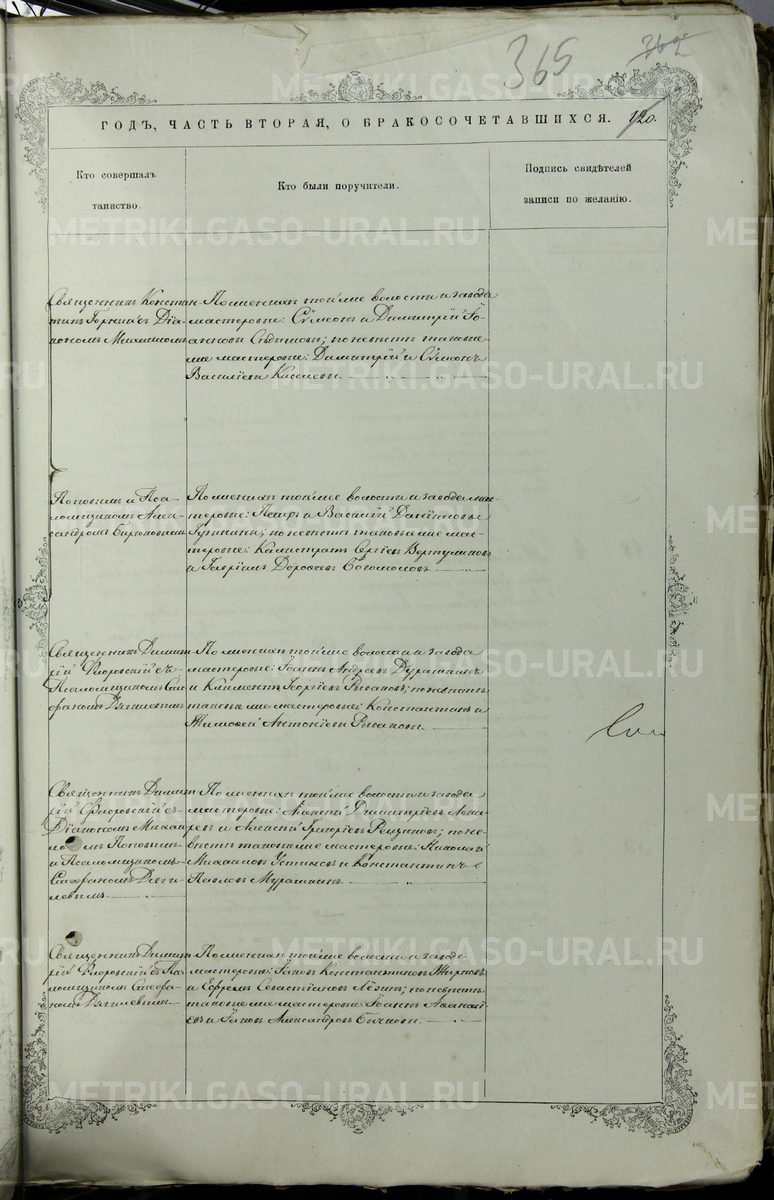 365
362
ГОДЪ, ЧАСТЬ ВТОРАЯ, О БРАКОСОЧЕТАВШИХСЯ.
120.
Кто совершалъ
таинство.
Кто были поручители.
Подпись свидѣтелей
записи по желанію.
Священникъ Констан-
тинъ съ Діа-
кономъ Михаиломъ
По женихѣ той же волости и завода
мастеровые: Сѵмеонъ и Димитрій Іо-
анновы по невѣстѣ таковые
же мастеровые: Димитрій и Сѵмеонъ
Василіевы
Поповымъ и Пса-
ломщикомъ Алек-
сандромъ
По женихѣ той же волости и завода мас-
теровые: Петръ и Василій Даніиловы
по невѣстѣ таковые же мас-
теровые: Калистратъ Сергіевъ
и Георгій Дороѳеевъ Богомоловъ
Священникъ Димит-
рій Флоровскій съ
Псаломщикомъ Сте-
фаномъ Дягилевымъ
По женихѣ той же волости и завода
мастеровые: Іоаннъ Андреевъ
и Климентъ Георгіевъ по невѣстѣ
таковые же мастеровые: Константинъ и
Тимоѳей Антоніевы
Священникъ Димит-
рій Флоровскій съ
Діакономъ Михаи-
ломъ Поповымъ
и Псаломщикомъ
Стефаномъ Дяги-
левымъ
По женихѣ той же волости и завода
мастеровые: Димитріевъ
и Алексій Григоріевъ по не-
вѣстѣ таковые же мастеровые: Николай
Михаиловъ Устиновъ и Константинъ
Павловъ Мурашкинъ
Священникъ Димит-
рій Флоровскій съ Пса-
ломщикомъ Стефа-
номъ Дягилевымъ
По женихѣ той же волости и завода
мастеровые: Іаковъ Константиновъ Жирновъ
и Ефремъ Севастіановъ по невѣстѣ
таковые же мастеровые: Іоаннъ Аѳанасі-
евъ и Іаковъ Александровъ
METRIKI.GASO-URAL.RU